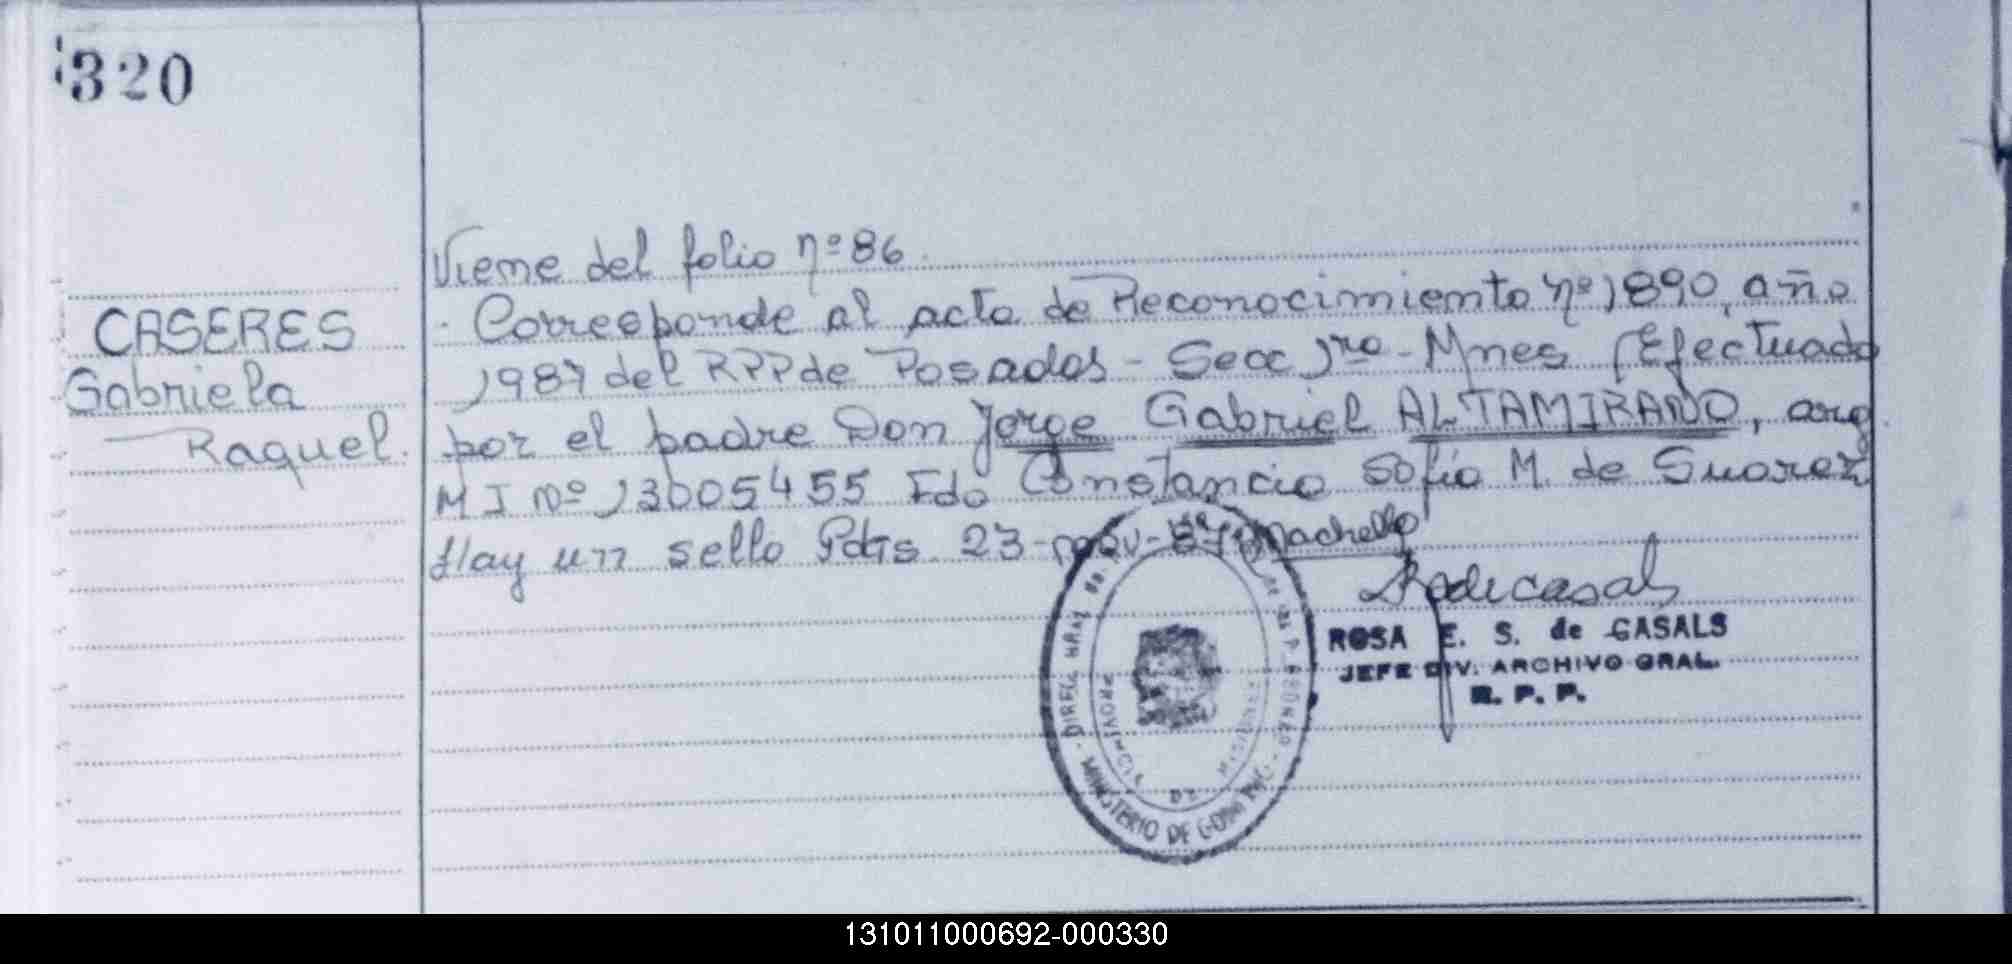 320
CASERES
Gabriela
Raquel.
Viene del folio nº 86
Corresponde al acta de Reconocimiento nº 1890, año
1987 del RPP de Posadas - Secc 1ra - Mnes (Efectuado
por el padre Don Jorge Gabriel ALTAMIRANO, arg
M I Nº 13005455 Fdo Constancio Sofia M. de Suarez
Hay un sello Pdas 23-nov-87
ROSA E. S. de CASALS
JEFE DIV. ARCHIVO GRAL.
R. P. P.
PROVINCIA DE MISIONES
MINISTERIO DE
131011000692-000330